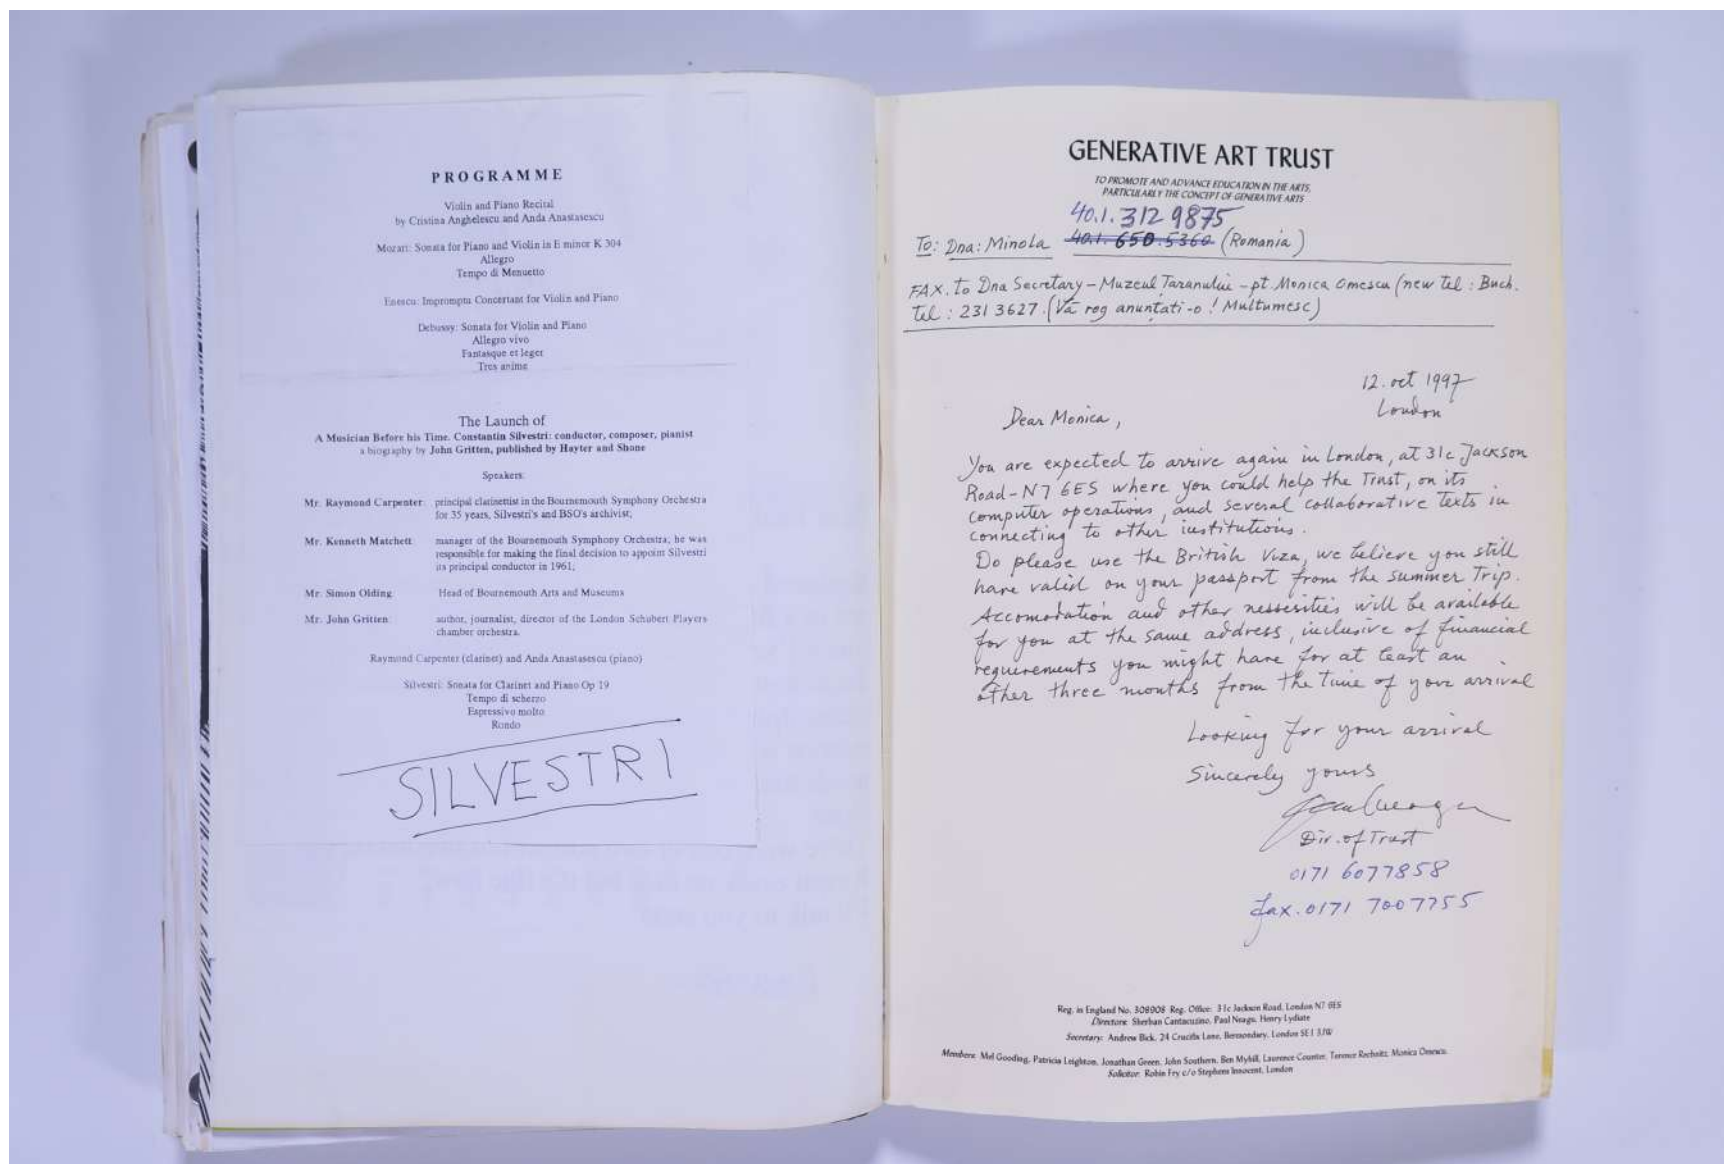 PROGRAMME
Violin and Piano Recital
by Cristina Anghelescu and Anda Anastasescu
Mozart: Sonata for Piano and Violin in E minor K 304
Allegro
Tempo di Menuetto
Enescu: Impromptu Concertant for Violin and Piano
Debussy: Sonata for Violin and Piano
Allegro vivo
Fantasque et leger
Tres anime
The Launch of
A Musician Before his Time. Constantin Silvestri: conductor, composer, pianist
a biography by John Gritten, published by Hayter and Shone
Speakers:
Mr. Raymond Carpenter: principal clarinettist in the Bournemouth Symphony Orchestra
for 35 years, Silvestri's and BSO's archivist;
Mr. Kenneth Matchett: manager of the Bournemouth Symphony Orchestra; he was
responsible for making the final decision to appoint Silvestri
its principal conductor in 1961;
Mr. Simon Olding: Head of Bournemouth Arts and Museums
Mr. John Gritten: author, journalist, director of the London Schubert Players
chamber orchestra.
Raymond Carpenter (clarinet) and Anda Anastasescu (piano)
Silvestri: Sonata for Clarinet and Piano Op 19
Tempo di scherzo
Espressivo molto
Rondo
SILVESTRI
GENERATIVE ART TRUST
TO PROMOTE AND ADVANCE EDUCATION IN THE ARTS,
PARTICULARLY THE CONCEPT OF GENERATIVE ARTS
40.1.312 9875
To: Dna: Minola 40.1.650.5360 (Romania)
FAX. to Dna Secretary - Muzeul Taranului - pt Monica Omescu (new tel: Buch.
Tel: 231 3627. (Vă rog anuntati-o! Multumesc)
12. oct 1997
London
Dear Monica,
You are expected to arrive again in London, at 31c Jackson
Road - N7 6ES where you could help the Trust, on its
computer operations, and several collaborative texts in
connecting to other institutions.
Do please use the British Viza, we believe you still
have valid on your passport from the summer Trip.
Accomodation and other nessesities will be available
for you at the same address, inclusive of financial
requirements you might have for at least an
other three months from the time of your arrival
Looking for your arrival
Sincerely yours
Dir. of Trust
0171 6077858
fax. 0171 7007755
Reg. in England No. 308908 Reg. Office: 31c Jackson Road, London N7 6ES
Directors: Sherban Cantacuzino, Paul Neagu, Henry Lydiate
Secretary: Andrew Bick, 24 Crucifix Lane, Bermondsey, London SE1 3JW
Members: Mel Gooding, Patricia Leighton, Jonathan Green, John Southern, Ben Myhill, Laurence Counter, Terence Rechnitz, Monica Omescu.
Solicitor: Robin Fry c/o Stephens Innocent, London